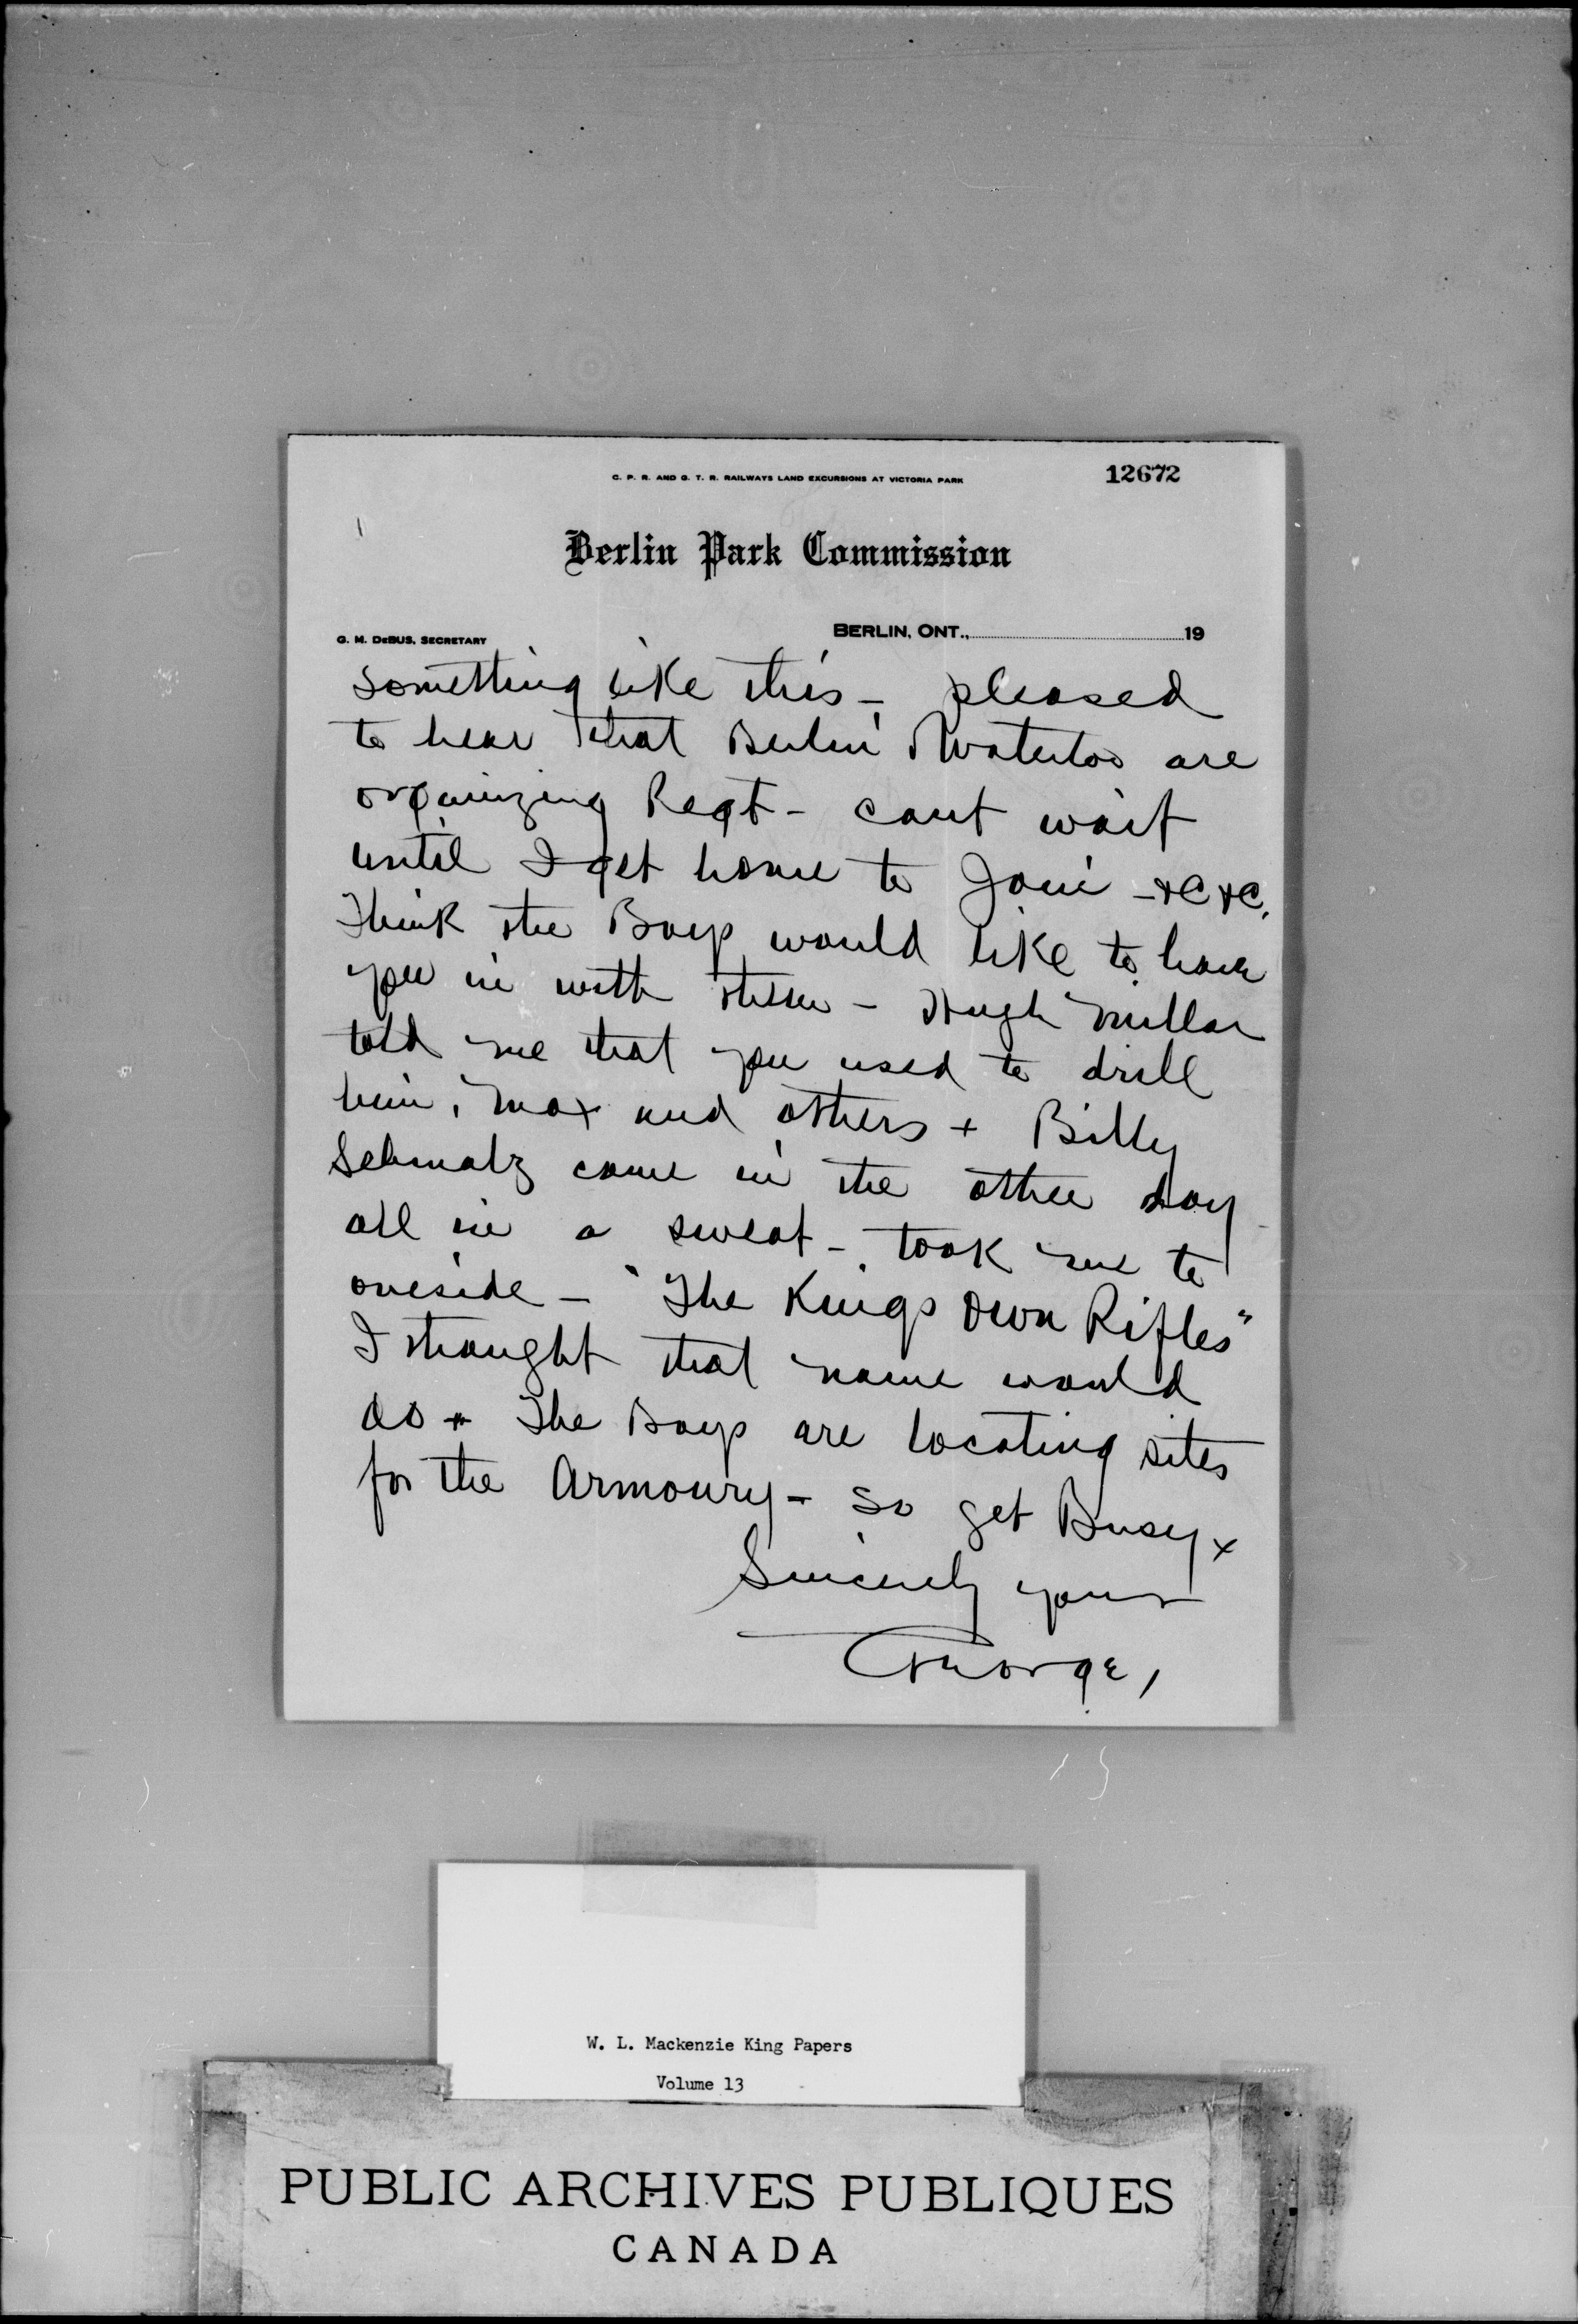 C. P. R. AND G. T. R. RAILWAYS LAND EXCURSIONS AT VICTORIA PARK
12672
Berlin Park Commission
G. M. DeBUS, SECRETARY
BERLIN, ONT., 19
something like this – pleased
to hear that Berlin & Waterloo are
organizing Regt – cant wait
until I get home to Join – &c &c.
Think the Boys would like to have
you in with them – Hugh Millar
told me that you used to drill
him, Max and others + Billy
Schmalz came in the other day
all in a sweat – took me to
oneside – "The Kings Own Rifles"
I thought that name would
do + The Boys are locating sites
for the Armoury – so get Busy x
Sincerely yours
George,
W. L. Mackenzie King Papers
Volume 13
PUBLIC ARCHIVES PUBLIQUES
CANADA